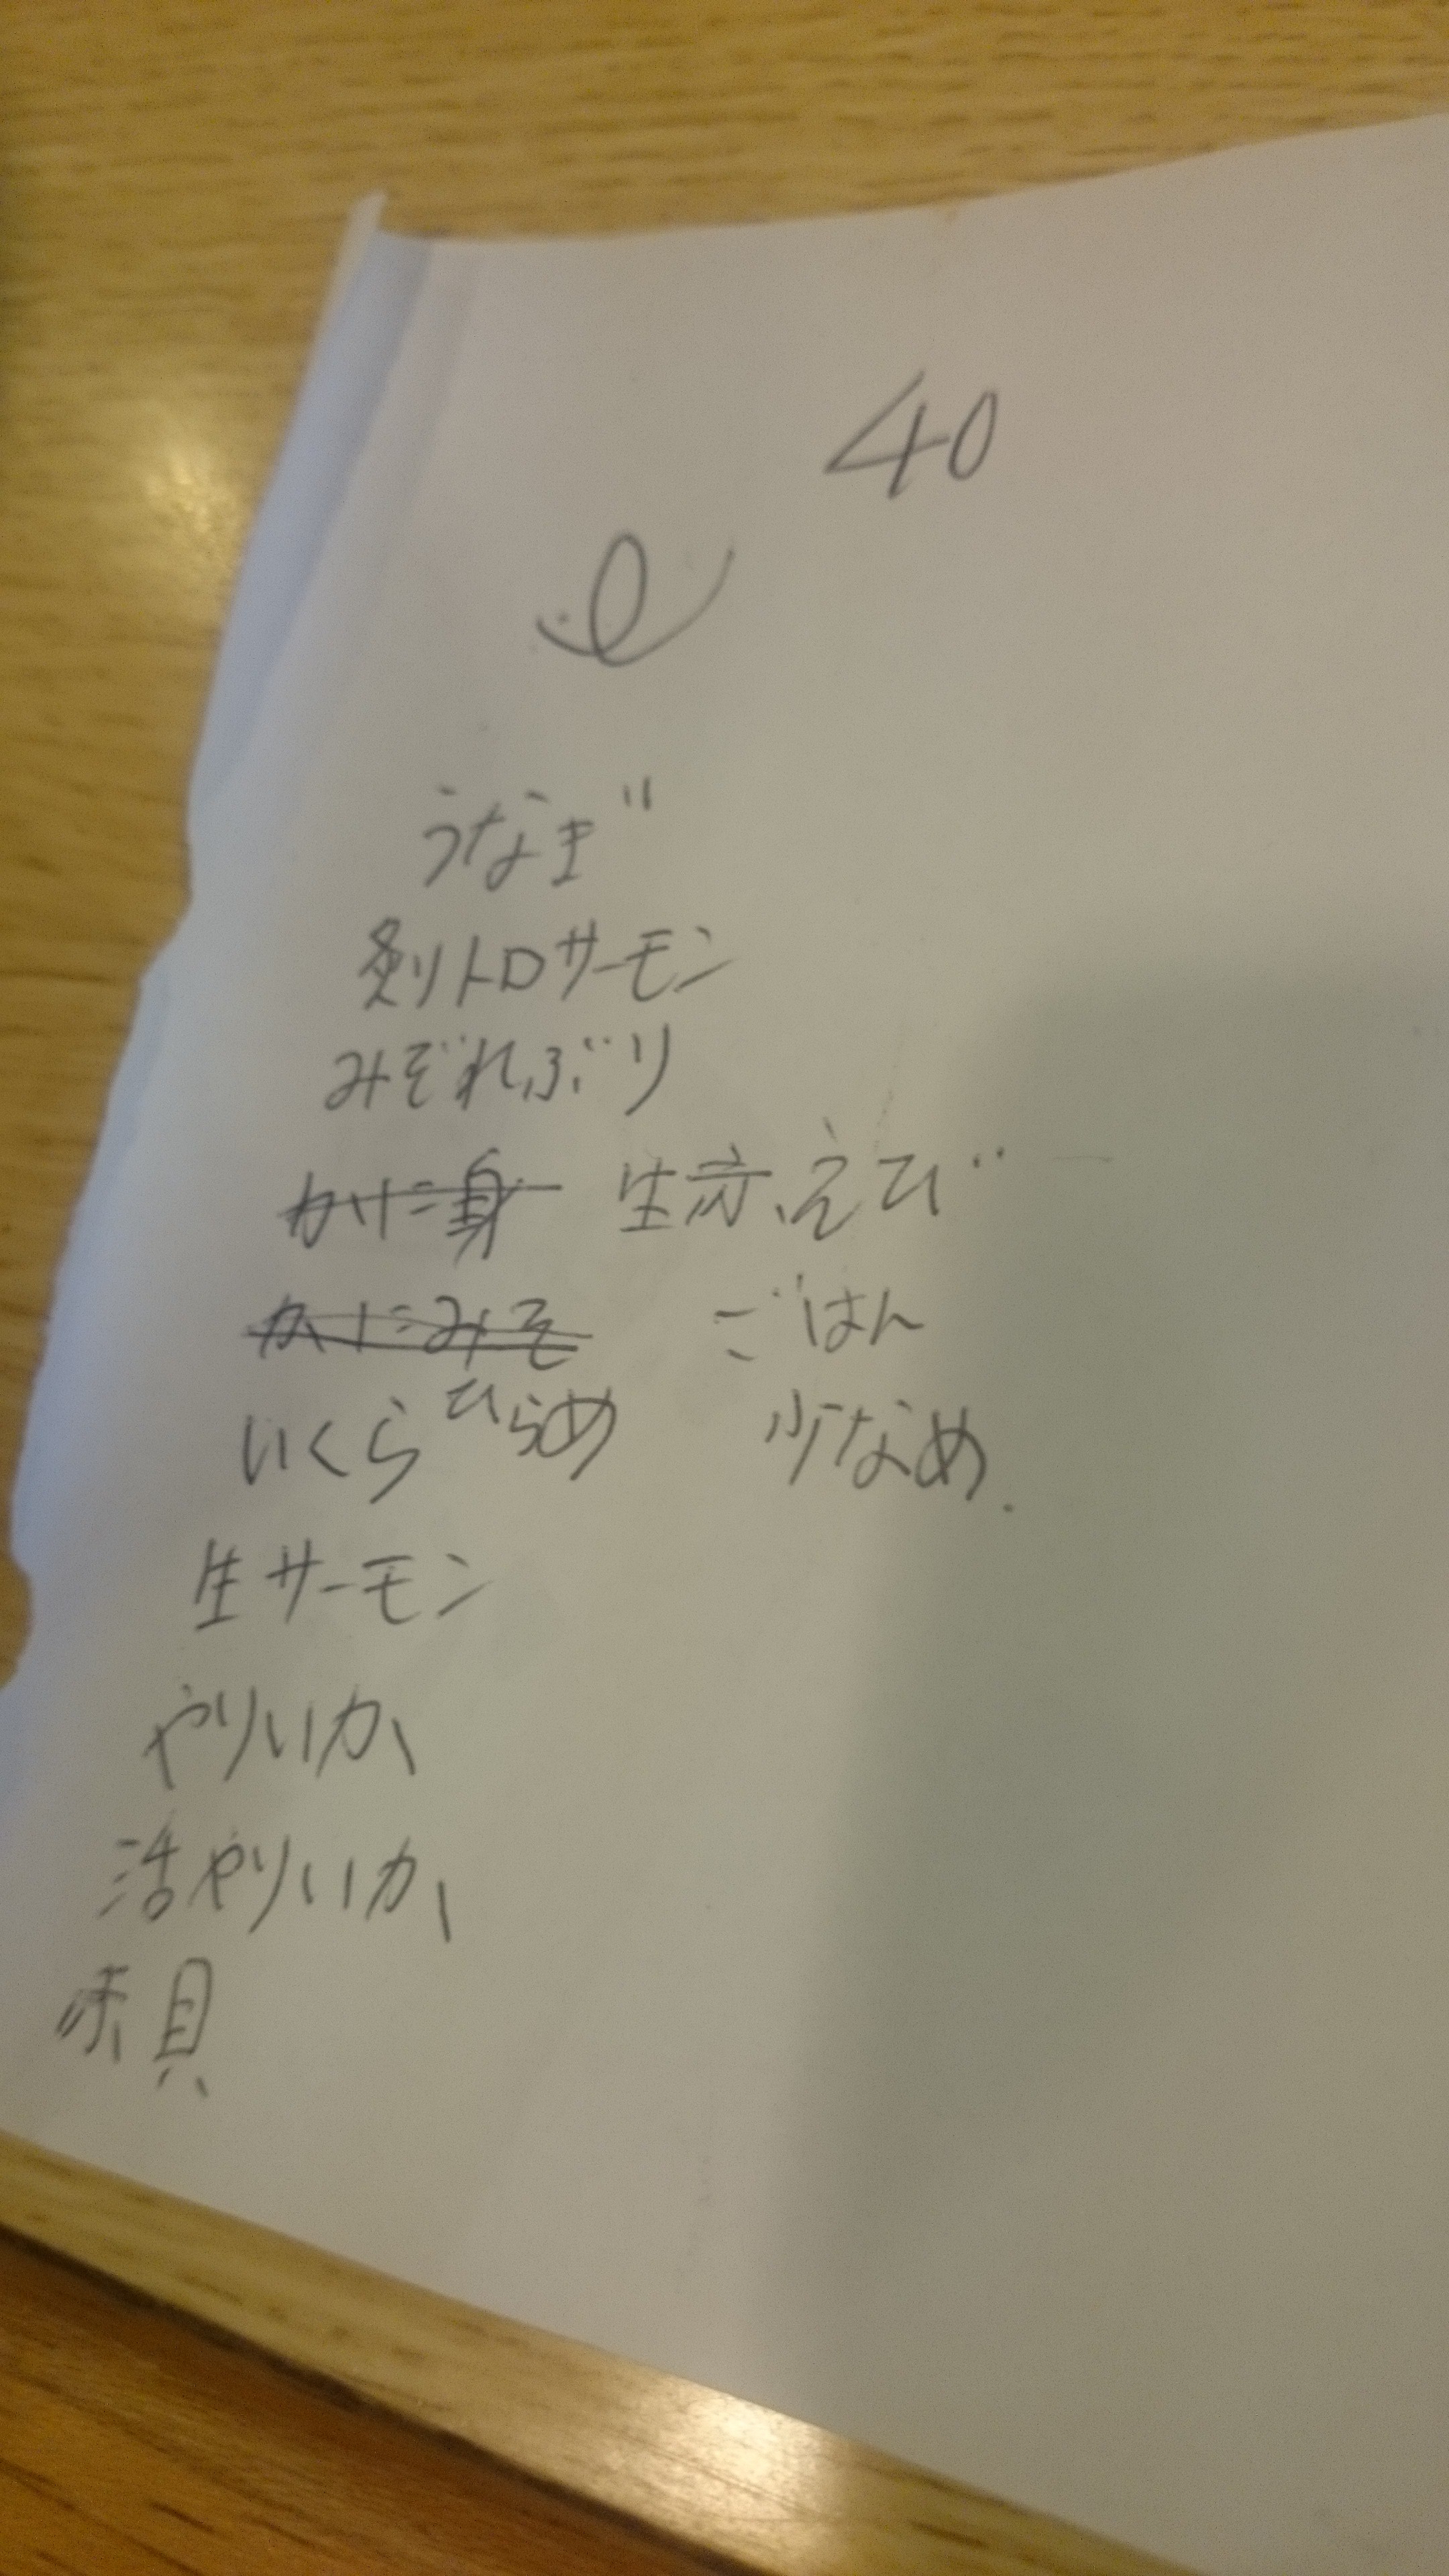 40
うなぎ
炙りトロサーモン
みぞれぶり
かに身 生赤えび
かにみそ ごはん
いくら ひらめ 少なめ
生サーモン
やりいか
活やりいか
赤貝